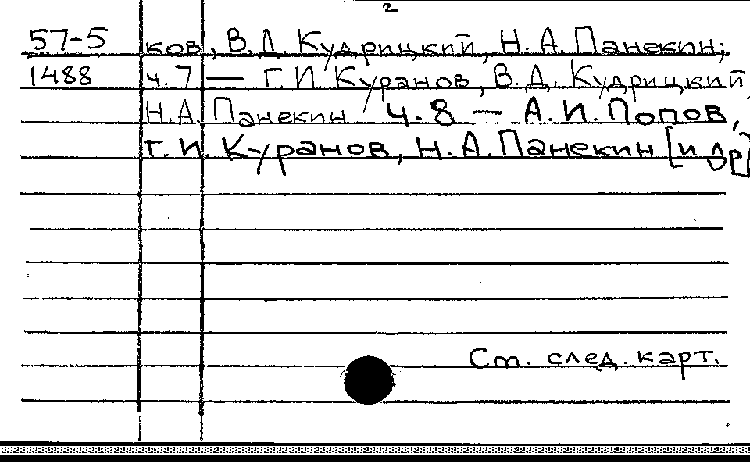 2
57-5 ков, В.Д. Кудрицкий, Н.А. Панекин;
1488 ч.7 — Г.И. Куранов, В.Д. Кудрицкий,
Н.А. Панекин; ч.8 — А.И. Попов,
Г.И. Куранов, Н.А. Панекин [и др]
См. след. карт.